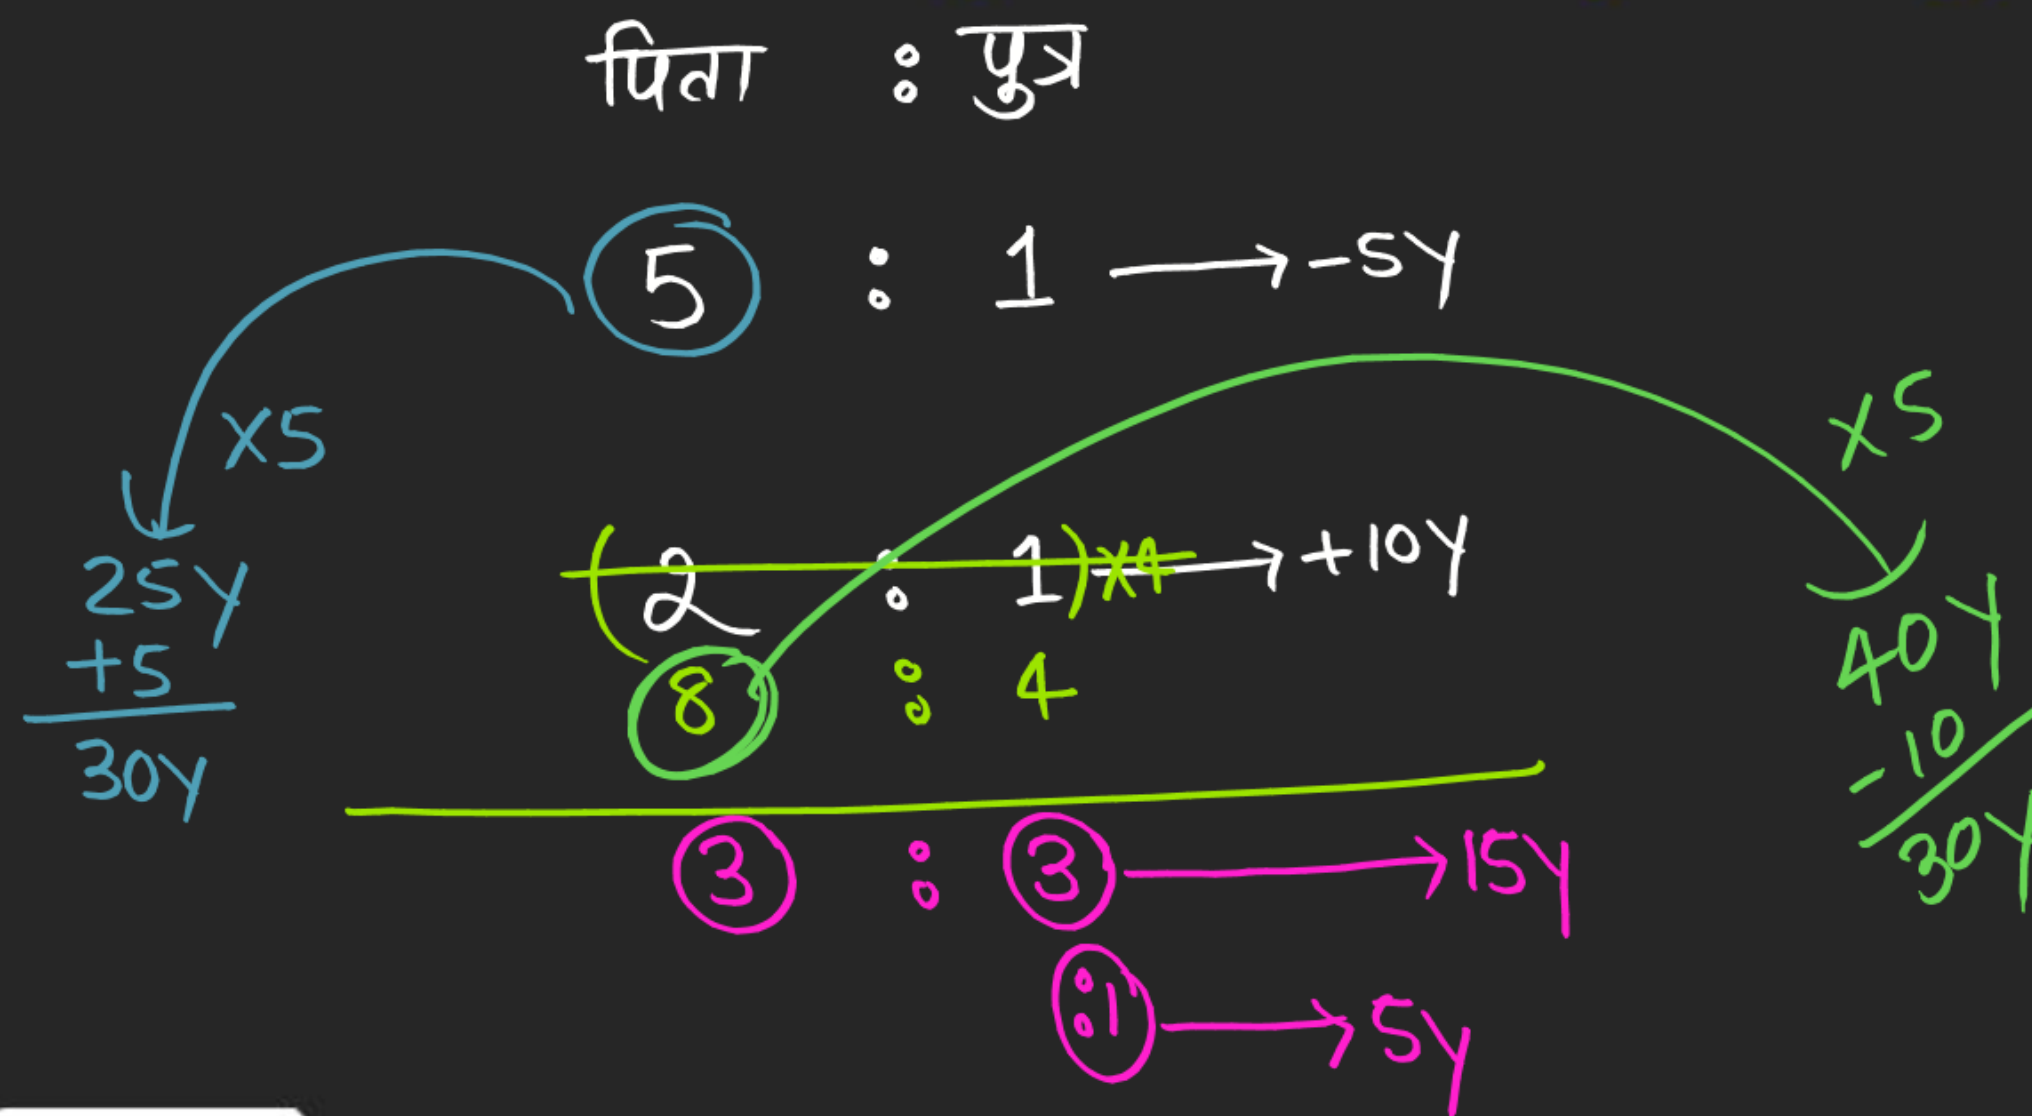 पिता : पुत्र
5 : 1 → -5Y
×5
×5
(2 : 1)×4 → +10Y
25Y
+5
30Y
8 : 4
40Y
-10
30Y
3 : 3 → 15Y
:1 → 5Y